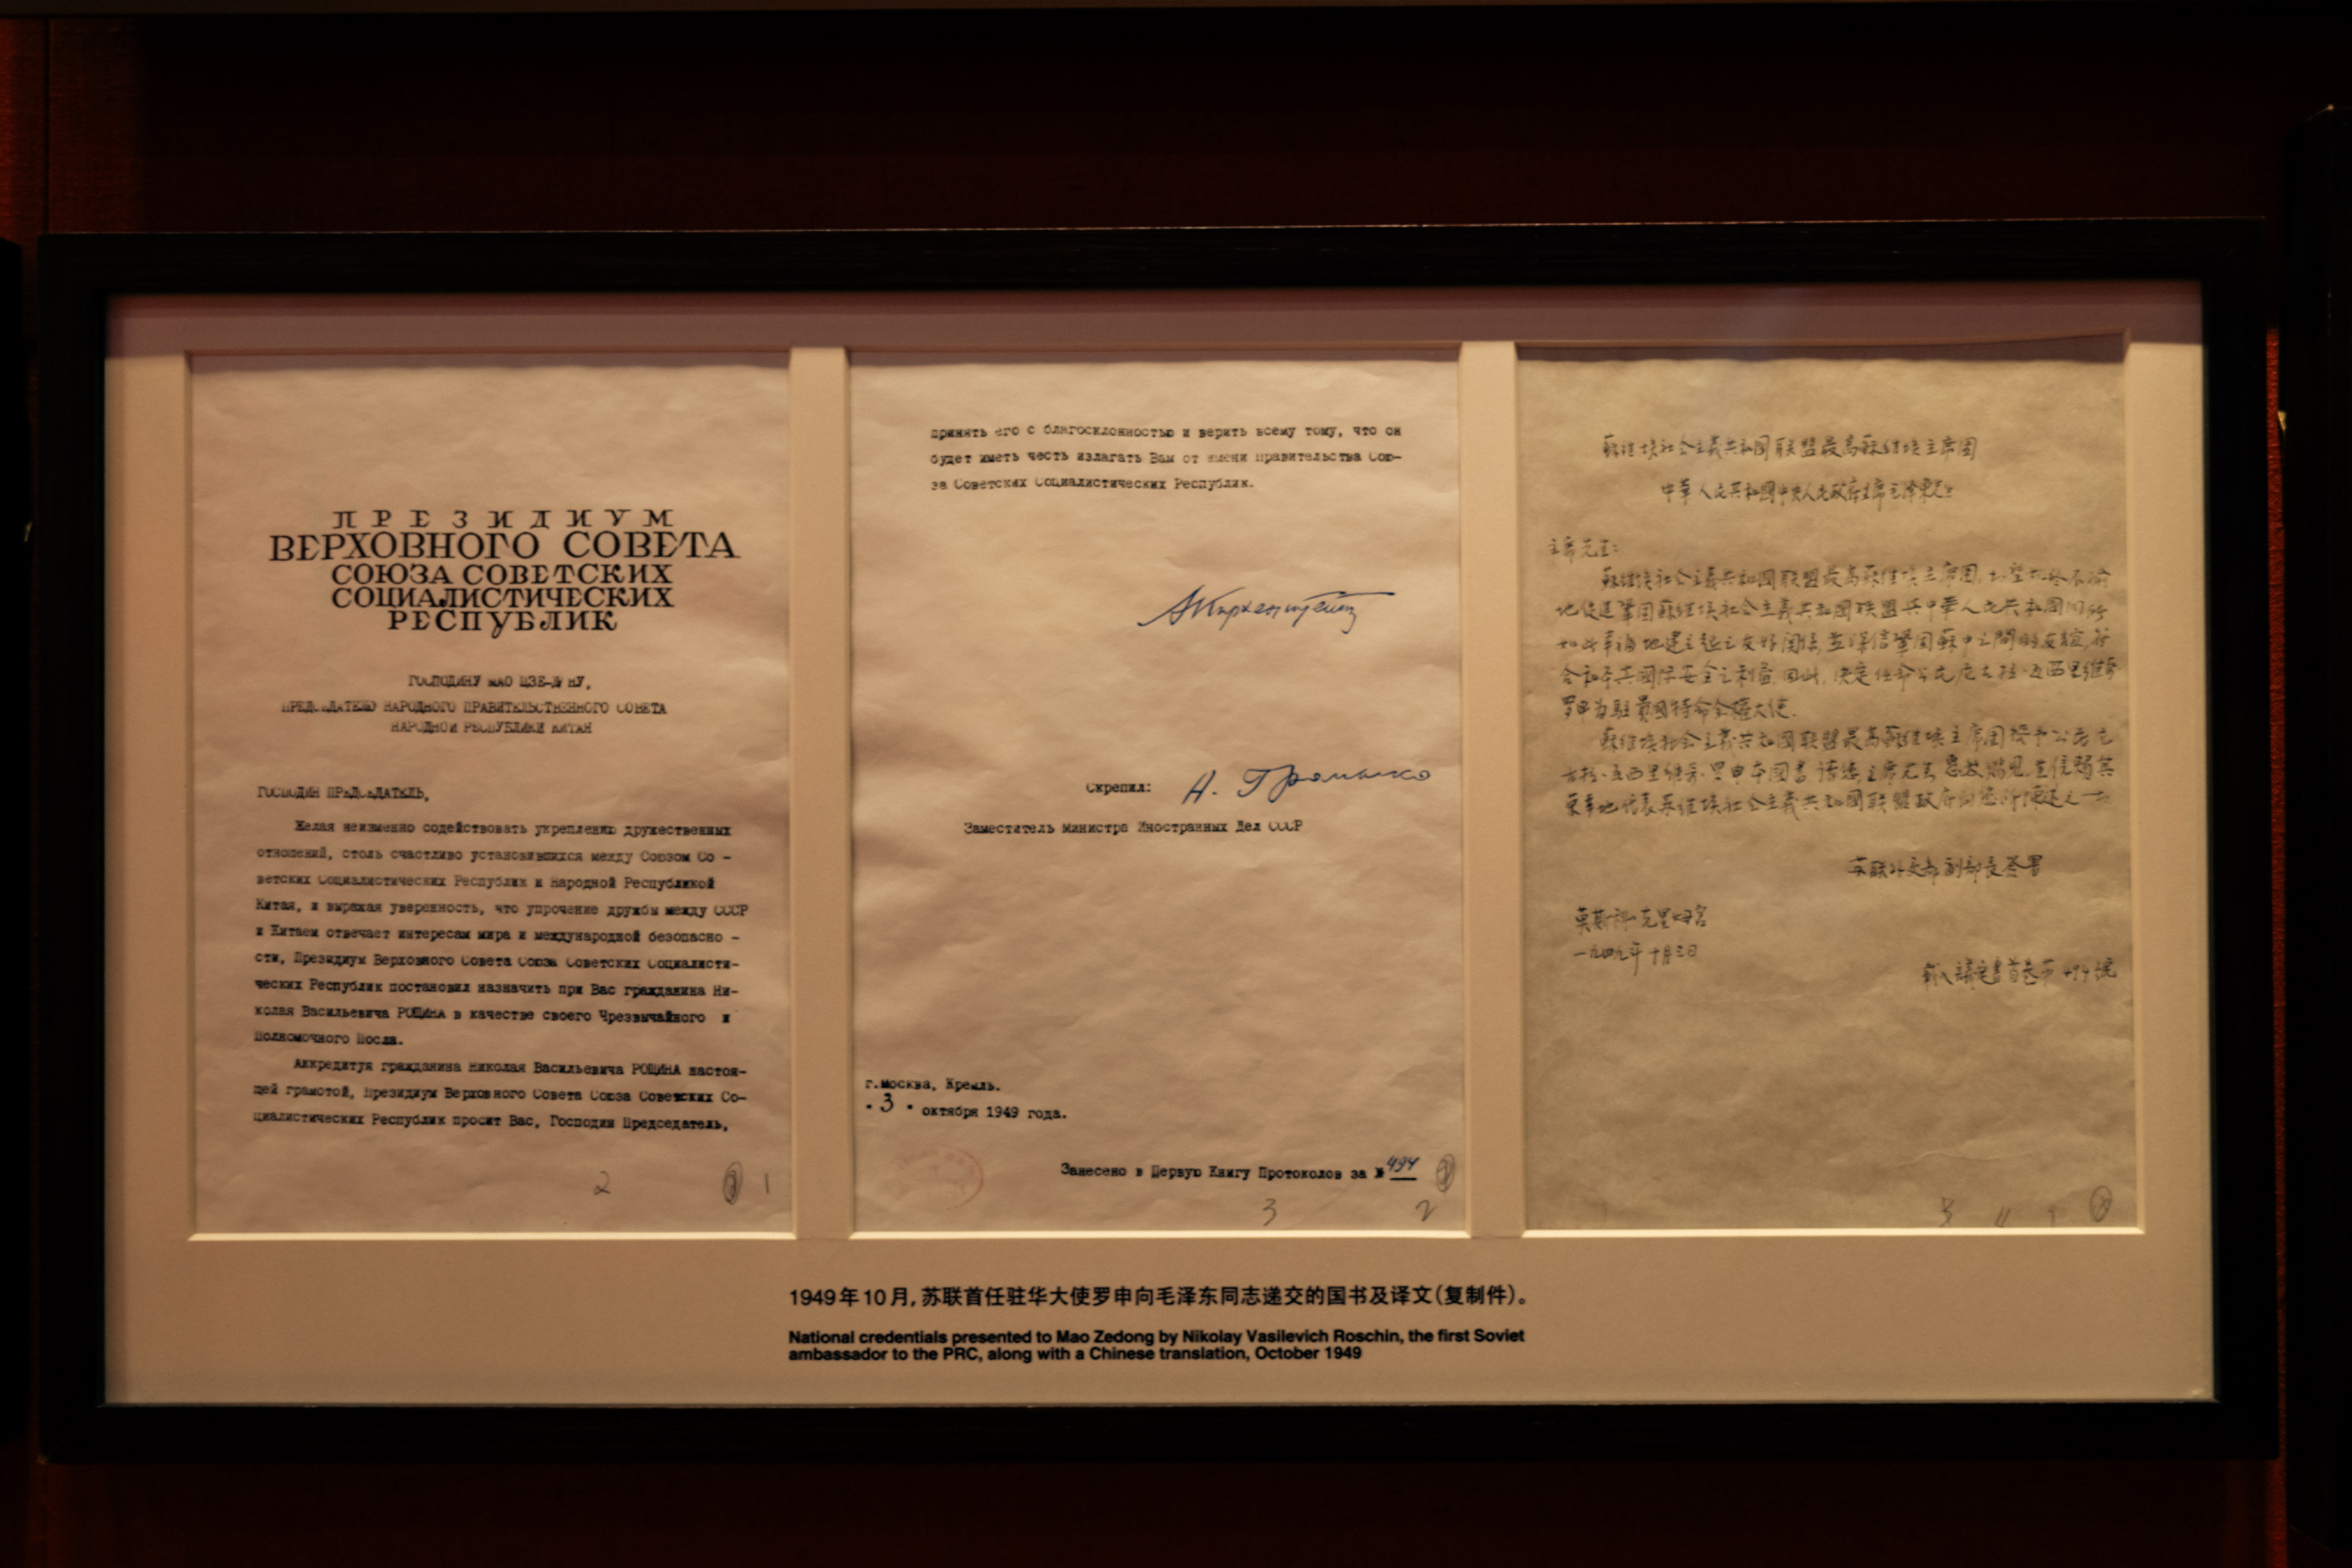 ПРЕЗИДИУМ
ВЕРХОВНОГО СОВЕТА
СОЮЗА СОВЕТСКИХ
СОЦИАЛИСТИЧЕСКИХ
РЕСПУБЛИК
ГОСПОДИНУ МАО ЦЗЕ-ДУНУ,
ПРЕДСЕДАТЕЛЮ НАРОДНОГО ПРАВИТЕЛЬСТВЕННОГО СОВЕТА
НАРОДНОЙ РЕСПУБЛИКИ КИТАЯ
ГОСПОДИН ПРЕДСЕДАТЕЛЬ,
Желая неизменно содействовать укреплению дружественных
отношений, столь счастливо установившихся между Союзом Со -
ветских Социалистических Республик и Народной Республикой
Китая, и выражая уверенность, что упрочение дружбы между СССР
и Китаем отвечает интересам мира и международной безопасно -
сти, Президиум Верховного Совета Союза Советских Социалисти-
ческих Республик постановил назначить при Вас гражданина Ни-
колая Васильевича РОЩИНА в качестве своего Чрезвычайного и
Полномочного Посла.
Аккредитуя гражданина Николая Васильевича РОЩИНА настоя-
щей грамотой, Президиум Верховного Совета Союза Советских Со-
циалистических Республик просит Вас, Господин Председатель,
2 1
принять его с благосклонностью и верить всему тому, что он
будет иметь честь излагать Вам от имени Правительства Сою-
за Советских Социалистических Республик.
Скрепил: А. Громыко
Заместитель Министра Иностранных Дел СССР
г.Москва, Кремль.
"3" октября 1949 года.
Занесено в Первую Книгу Протоколов за № 494
3 2
蘇維埃社会主義共和國联盟最高蘇維埃主席团
中華人民共和國中央人民政府主席毛澤東先生
主席先生:
蘇維埃社会主義共和國联盟最高蘇維埃主席团,
地促進鞏固蘇維埃社会主義共和國联盟与中華人民共和國间所
如此幸福地建立起之友好関係,並深信鞏固蘇中之間的友誼,符
合和平与國際安全之利益,因此,決定任命公民尼古拉·瓦西里維赤
罗申为駐貴國特命全權大使.
蘇維埃社会主義共和國联盟最高蘇維埃主席团授予公民尼
古拉·瓦西里維赤·罗申本國書,請您,主席先生,惠然賜見,並信賴其
榮幸地代表蘇維埃社会主義共和國联盟政府向您所陳述之一切
苏联外交部副部長签署
莫斯科·克里姆宮
一九四九年十月三日
1949年10月,苏联首任驻华大使罗申向毛泽东同志递交的国书及译文(复制件)。
National credentials presented to Mao Zedong by Nikolay Vasilevich Roschin, the first Soviet
ambassador to the PRC, along with a Chinese translation, October 1949